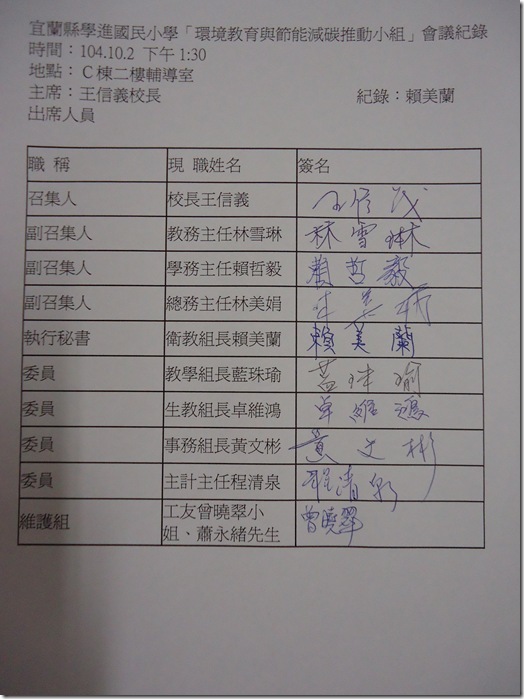 宜蘭縣學進國民小學「環境教育與節能減碳推動小組」會議紀錄
時間：104.10.2 下午 1:30
地點：C棟二樓輔導室
主席：王信義校長 紀錄：賴美蘭
出席人員
職 稱 現 職姓名 簽名
召集人 校長王信義 王信義
副召集人 教務主任林雪琳 林雪琳
副召集人 學務主任賴哲毅 賴哲毅
副召集人 總務主任林美娟 林美娟
執行秘書 衛教組長賴美蘭 賴美蘭
委員 教學組長藍珠瑜 藍珠瑜
委員 生教組長卓維鴻 卓維鴻
委員 事務組長黃文彬 黃文彬
委員 主計主任程清泉 程清泉
維護組 工友曾曉翠小姐、蕭永緒先生 曾曉翠